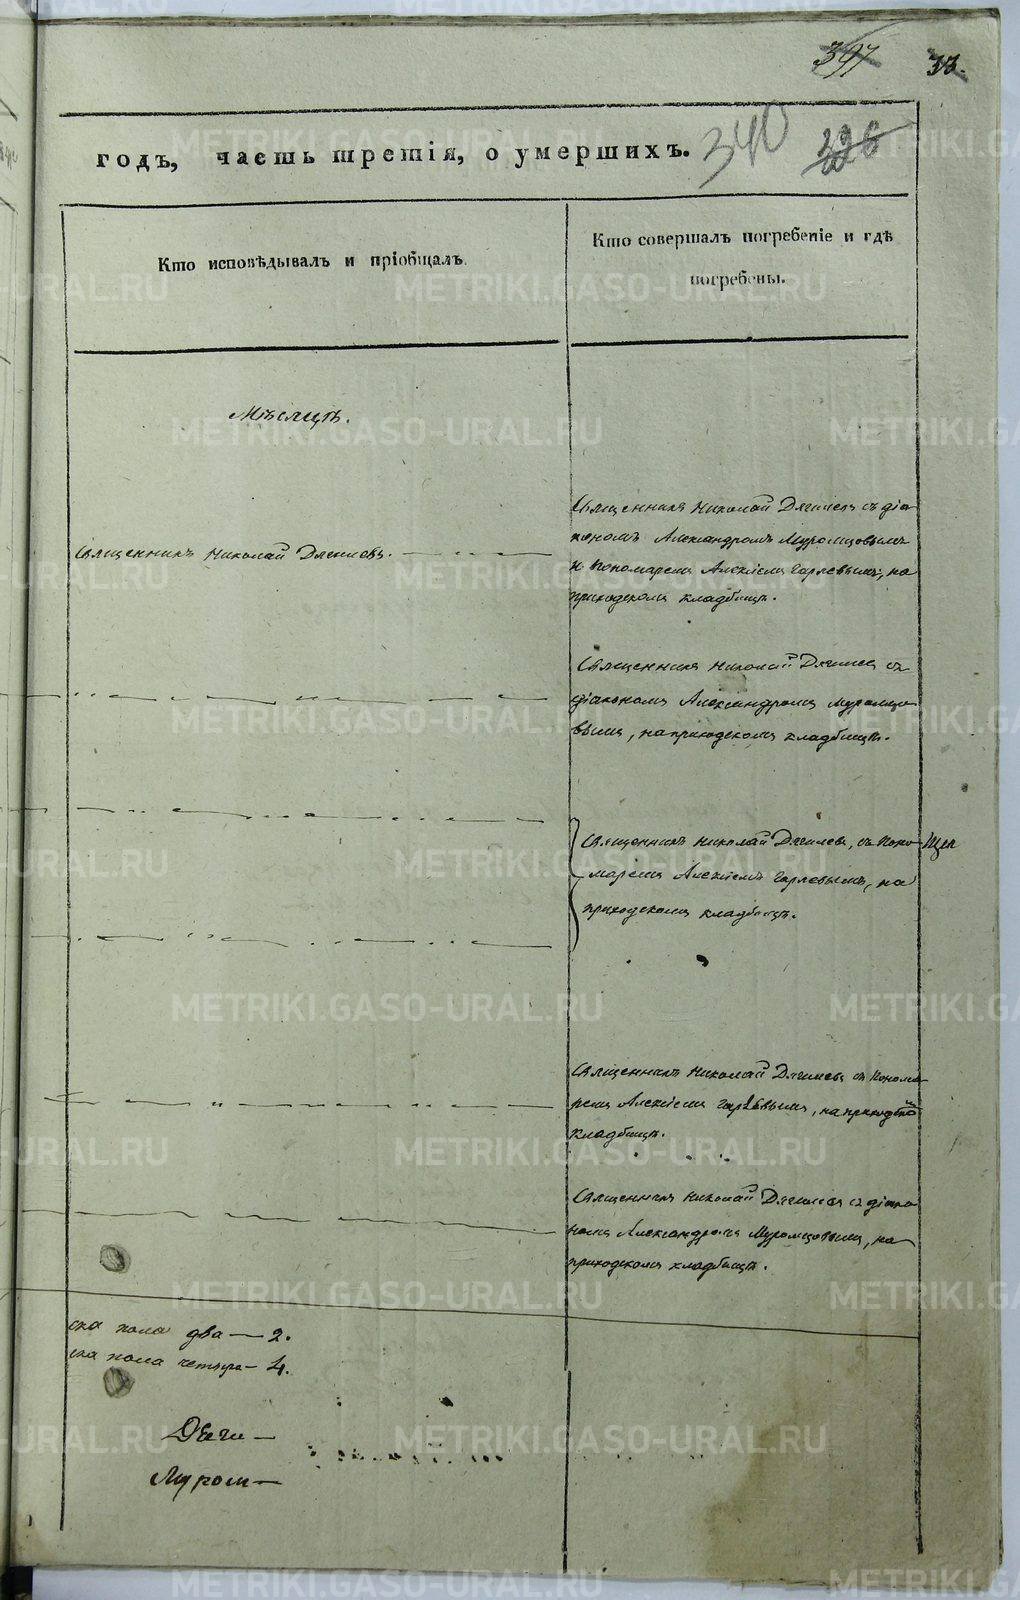 397 33.
340 226
годъ, часть третія, о умершихъ.
Кто исповѣдывалъ и пріобщалъ.
Кто совершалъ погребеніе и гдѣ
погребены.
Мѣсяцъ.
Священникъ Николай Дягилевъ.
Священникъ Николай Дягилевъ съ діа-
кономъ Александромъ Муромцовымъ
и Пономаремъ Алексѣемъ, на
приходскомъ кладбищѣ.
Священникъ Николай Дягилевъ съ
діакономъ Александромъ Муромцо-
вымъ, на приходскомъ кладбищѣ.
Священникъ Николай Дягилевъ, съ Поно-
маремъ Алексѣемъ, на
приходскомъ кладбищѣ.
Священникъ Николай Дягилевъ съ Понома-
ремъ Алексѣемъ, на приходском
кладбищѣ.
Священникъ Николай Дягилевъ съ діако-
номъ Александромъ Муромцовымъ, на
приходскомъ кладбищѣ.
ска пола два — 2.
ска пола четыре — 4.
Муром —
METRIKI.GASO-URAL.RU